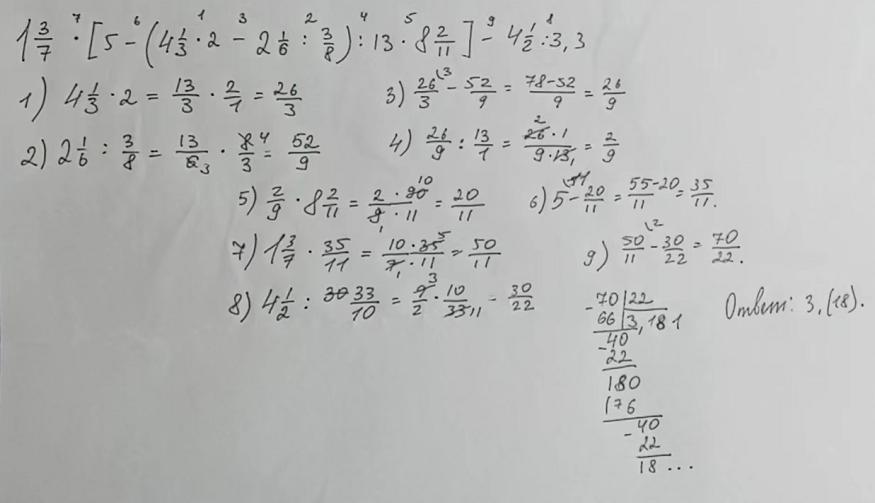 1 3/7 · [5 - (4 1/3 · 2 - 2 1/6 : 3/8) : 13 · 8 2/11] - 4 1/2 : 3,3
1) 4 1/3 · 2 = 13/3 · 2/1 = 26/3
3) 26/3 - 52/9 = 78-52/9 = 26/9
2) 2 1/6 : 3/8 = 13/6 · 8/3 = 52/9
4) 26/9 : 13/1 = 26·1/9·13 = 2/9
5) 2/9 · 8 2/11 = 2·90/9·11 = 20/11
6) 5 - 20/11 = 55-20/11 = 35/11.
7) 1 3/7 · 35/11 = 10·35/7·11 = 50/11
9) 50/11 - 30/22 = 70/22.
8) 4 1/2 : 33/10 = 9/2 · 10/33 = 30/22
-70 22
66 3,181
-40
22
180
176
-40
22
18...
Ответ: 3,(18).